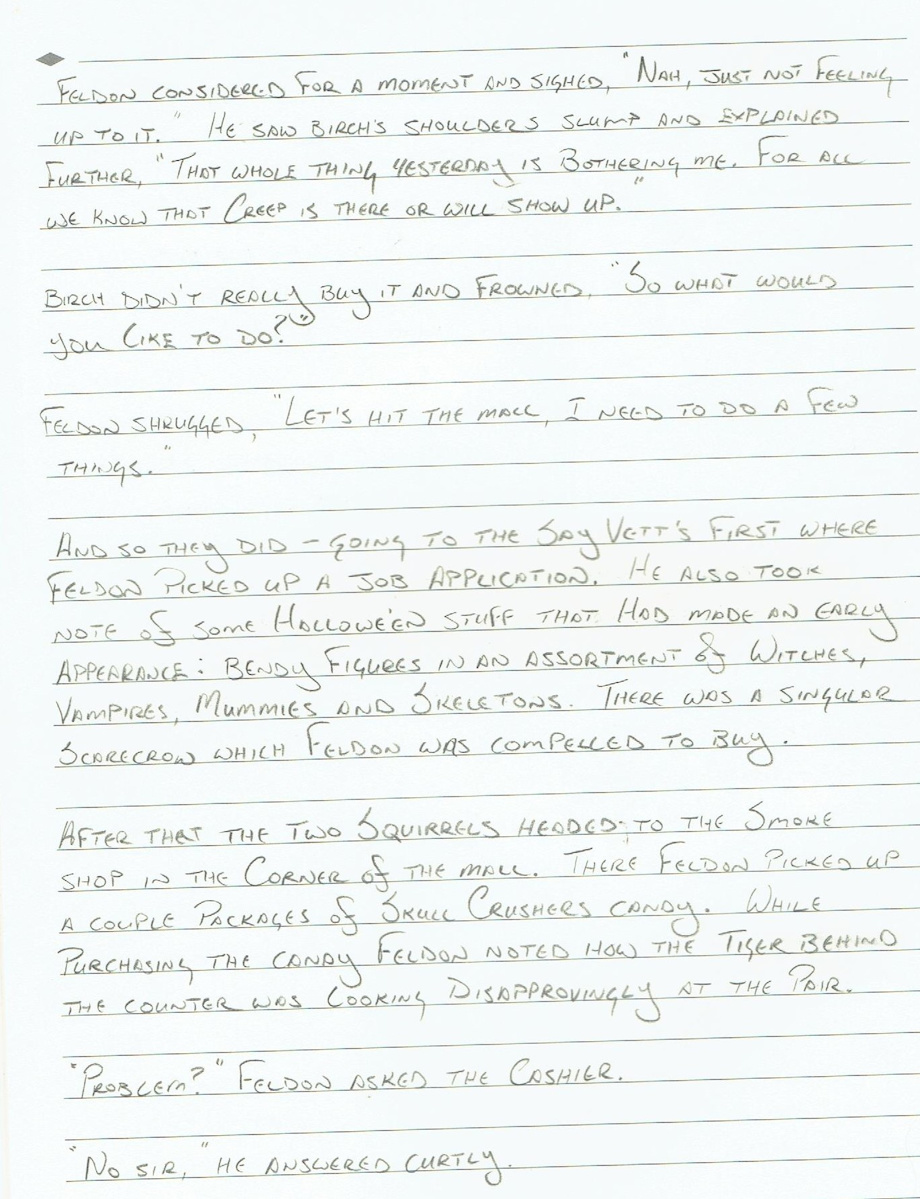 Feldon considered for a moment and sighed, "Nah, just not feeling
up to it." He saw Birch's shoulders slump and explained
further, "That whole thing yesterday is bothering me. For all
we know that creep is there or will show up."
Birch didn't really buy it and frowned. "So what would
you like to do?"
Feldon shrugged, "Let's hit the mall, I need to do a few
things."
And so they did – going to the Say Vett's first where
Feldon picked up a job application. He also took
note of some Hallowe'en stuff that had made an early
appearance: bendy figures in an assortment of witches,
vampires, mummies and skeletons. There was a singular
scarecrow which Feldon was compelled to buy.
After that the two squirrels headed to the smoke
shop in the corner of the mall. There Feldon picked up
a couple packages of Skull Crushers candy. While
purchasing the candy Feldon noted how the tiger behind
the counter was looking disapprovingly at the pair.
"Problem?" Feldon asked the cashier.
"No sir," he answered curtly.